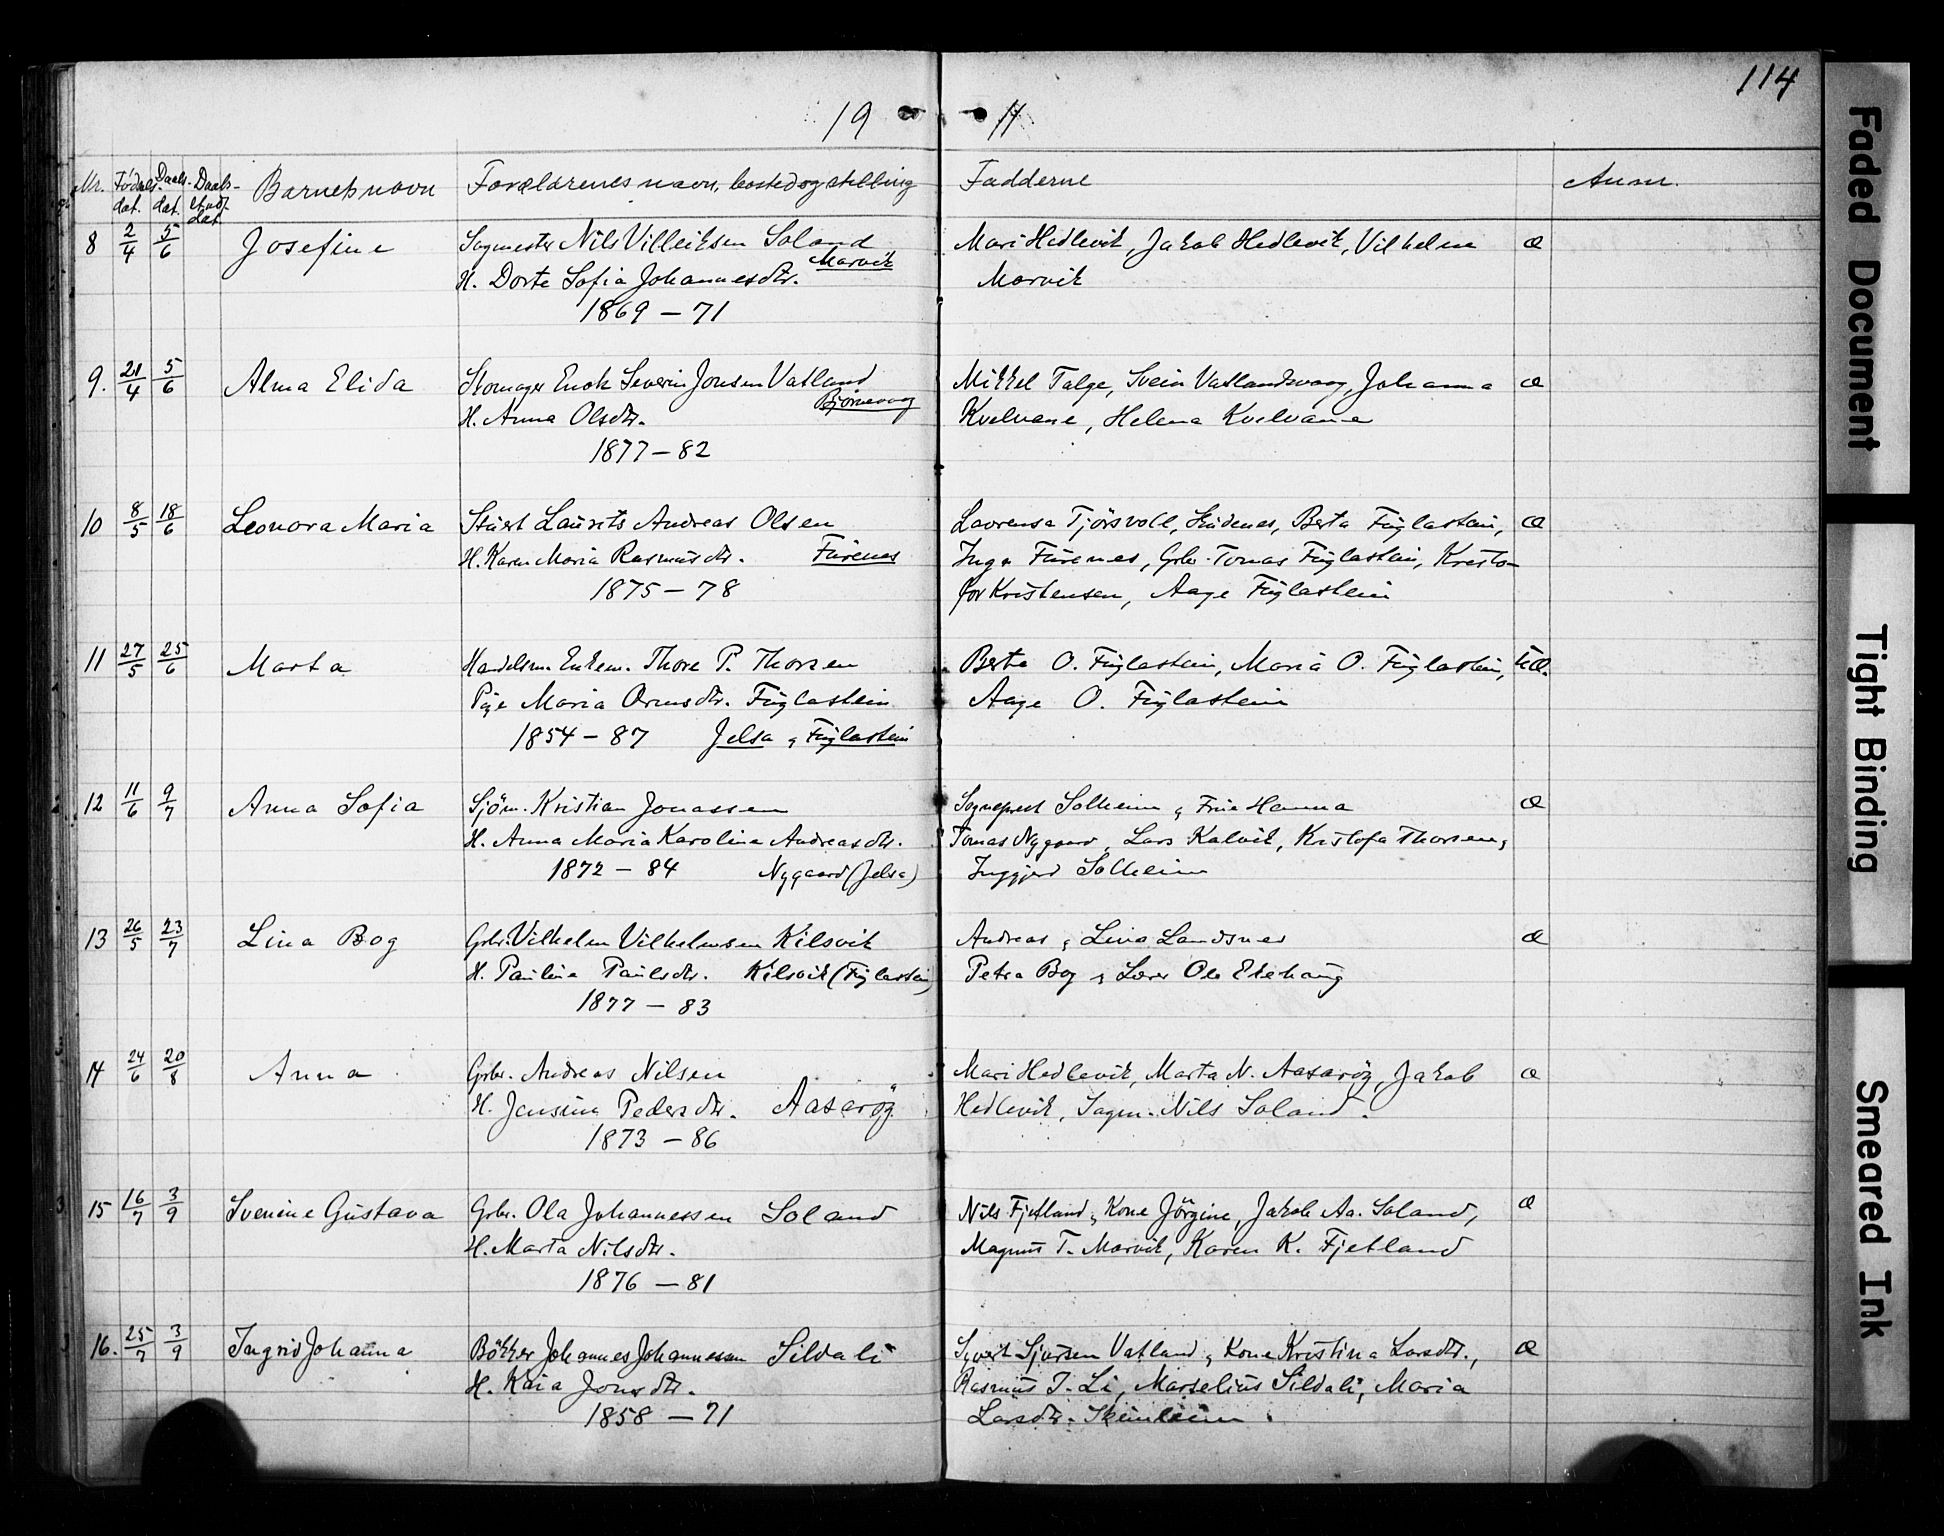 114
19 11
Nr. Fødsels dat. Daabs- dat. Daabs- stad. dat. Barnets navn Forældrenes navn, bosted og stilling Fadderne Anm.
8 2/4 5/6 Josefine Sagmester Nils Villeiksen Soland Mari Hedlevik, Jakob Hedlevik, Vilhelm Æ
Marvik
H. Dorte Sofia Johannesdtr. Marvik
1869 – 71
9. 21/4 5/6 Alma Elida Skomager Enok Severin Jonsen Vatland Mikkel Talge, Svein Vatlandsvaag, Johanna Æ
Bjørnevaag
H. Anna Olsdtr. Kvelvane, Helena Kvelvane
1877 – 82
10 8/5 18/6 Leonora Maria Stuert Laurits Andreas Olsen Lavrensa Tjörsvoll, Skudenes, Berta Fuglastein, Æ
H. Karen Maria Rasmusdtr. Furenes Inga Furenes, Grbr. Tomas Fuglastein, Kristo-
1875 – 78 for Kristensen, Aage Fuglastein
11 27/5 25/6 Marta Handelsm. Enkem. Thore P. Thorsen Berta O. Fuglastein, Maria O. Fuglastein, UÆ.
Pige Maria Ormsdtr. Fuglastein Aage O. Fuglastein
1854 – 87 Jelsa & Fuglastein
12 11/6 9/7 Anna Sofia Sjöm. Kristian Jonassen Sogneprest Solheim & Frue Hanna Æ
H. Anna Maria Karolina Andreasdtr. Tomas Nygaard, Lars Kalvik, Kristofa Thorsen,
1872 – 84 Nygaard (Jelsa) Inggjerd Solheim
13 26/5 23/7 Lina Bog Grbr. Vilhelm Vilhelmsen Kilsvik Andreas & Lina Landsnes Æ
H. Pauline Paulsdtr. Kilsvik (Fuglastein) Petra Bog & Lærer Ole Ekehaug
1877 – 83
14 24/6 20/8 Anna Grbr. Andreas Nilsen Mari Hedlevik, Marta N. Aasarög, Jakob Æ
H. Jensine Pedersdtr. Aasarög Hedlevik, Sagm. Nils Soland.
1873 – 86
15 16/7 3/9 Svenine Gustava Grbr. Ola Johannessen Soland Nils Fjetland & Kone Jörgine, Jakob Aa. Soland, Æ
H. Marta Nilsdtr. Magnus T. Marvik, Karen K. Fjetland
1876 – 81
16. 25/7 3/9 Ingrid Johanna Bökker Johannes Johannessen Sildali Syvert Sjursen Vatland & Kone Kristina Larsdtr., Æ
H. Kaia Jonsdtr. Rasmus T. Li, Marselius Sildali, Maria
1858 – 71 Larsdtr.
Faded Document
Tight Binding
Smeared Ink